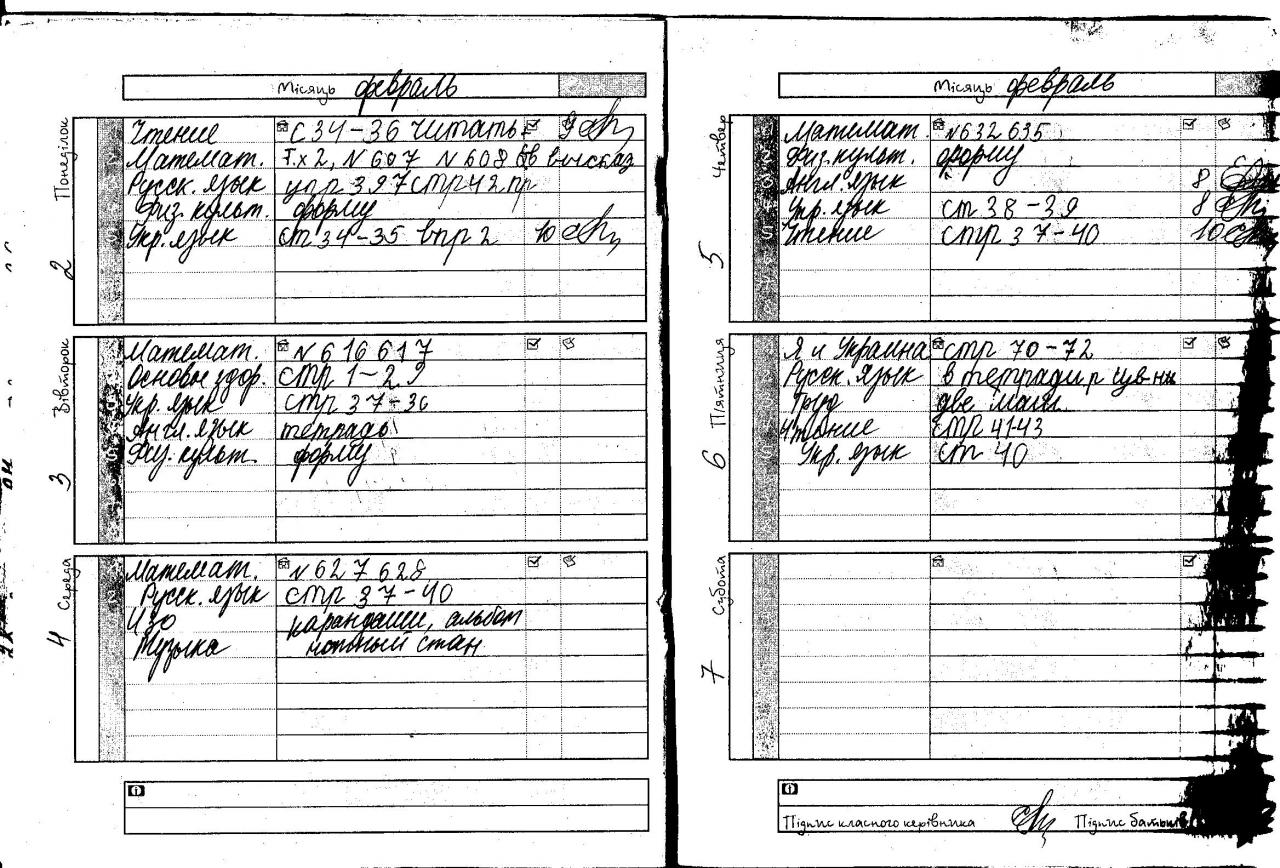 Місяць февраль
Понеділок 2
Чтение С 34-36 читать 9
Математ. Т.х 2, N 607 N 608
Русск. язык упр 397 стр 42
Физ. культ. форму
Укр. язык ст 34-35 впр 2 10
Вівторок 3
Математ. N 616 617
Основы здор. стр 1-29
Укр. язык стр 37-36
Англ. язык тетрадь
Физ. культ. форму
Середа 4
Математ. N 627 628
Русск. язык стр 37-40
ИЗО карандаши, альбом
Музыка нотный стан
Місяць февраль
Четвер 5
Математ. N 632 635
Физ. культ. форму
Англ. язык 8
Укр. язык ст 38-39 8
Чтение стр 37-40 10
П'ятниця 6
Я и Украина стр 70-72
Русск. язык в тетради
Труд две
Чтение стр 41-43
Укр. язык ст 40
Субота 7
Підпис класного керівника Підпис батьків